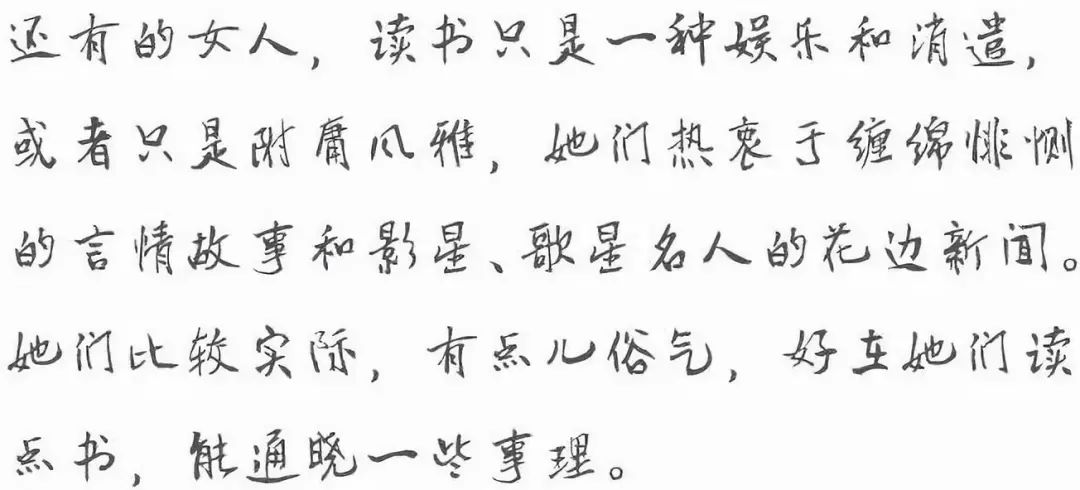 还有的女人，读书只是一种娱乐和消遣，
或者只是附庸风雅，她们热衷于缠绵悱恻
的言情故事和影星、歌星名人的花边新闻。
她们比较实际，有点儿俗气，好在她们读
点书，能通晓一些事理。